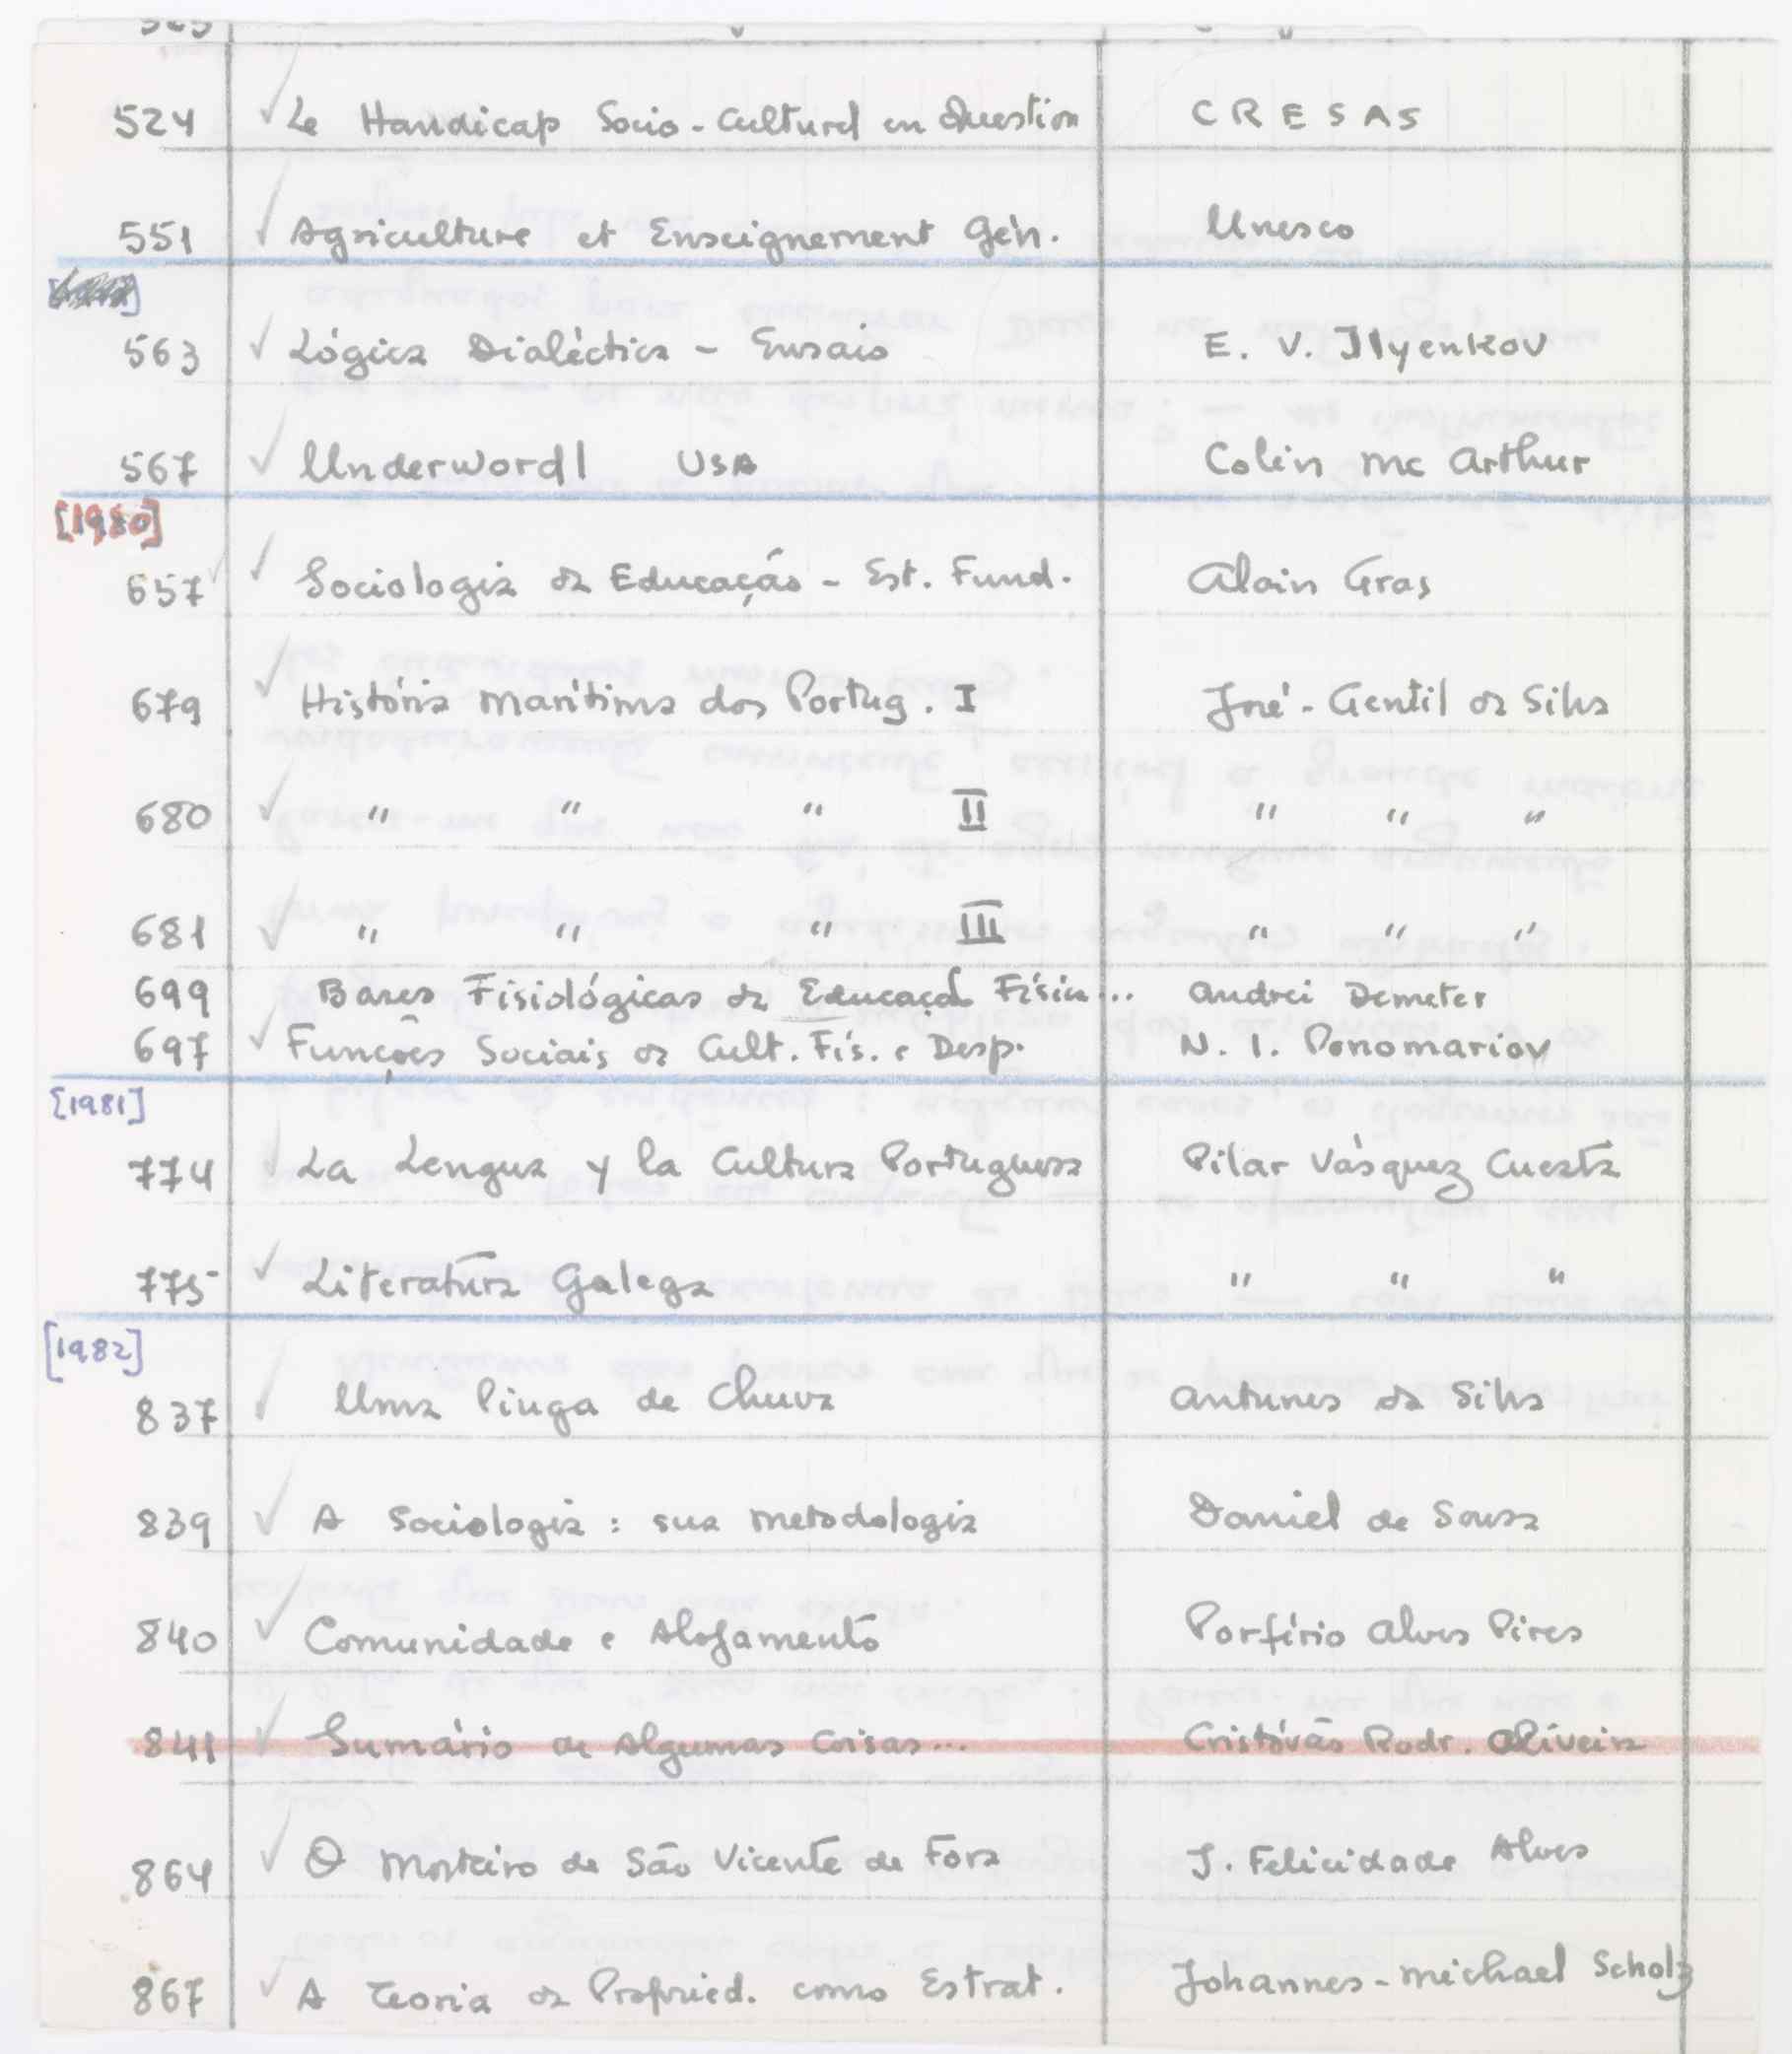 524 ✓ Le Handicap Socio-Culturel en Question CRESAS
551 ✓ Agriculture et Enseignement Gén. Unesco
563 ✓ Lógica Dialéctica - Ensaio E. V. Ilyenkov
567 ✓ Underwordl USA Colin Mc Arthur
[1980]
657 ✓ Sociologia da Educação - Est. Fund. Alain Gras
679 ✓ História Marítima dos Portug. I José-Gentil da Silva
680 ✓ " " " II " " "
681 ✓ " " " III " " "
699 Bases Fisiológicas da Educação Física... Andrei Demeter
697 ✓ Funções Sociais da Cult. Fís. e Desp. N. I. Ponomariov
[1981]
774 ✓ La Lengua y la Cultura Portuguesa Pilar Vásquez Cuesta
775 ✓ Literatura Galega " " "
[1982]
837 ✓ Uma Pinga de Chuva Antunes da Silva
839 ✓ A Sociologia: sua metodologia Daniel de Sousa
840 ✓ Comunidade e Alojamento Porfírio Alves Pires
841 ✓ Sumário de Algumas Coisas... Cristóvão Rodr. Oliveira
864 ✓ O Mosteiro de São Vicente de Fora J. Felicidade Alves
867 ✓ A Teoria da Propried. como Estrat. Johannes-Michael Scholz